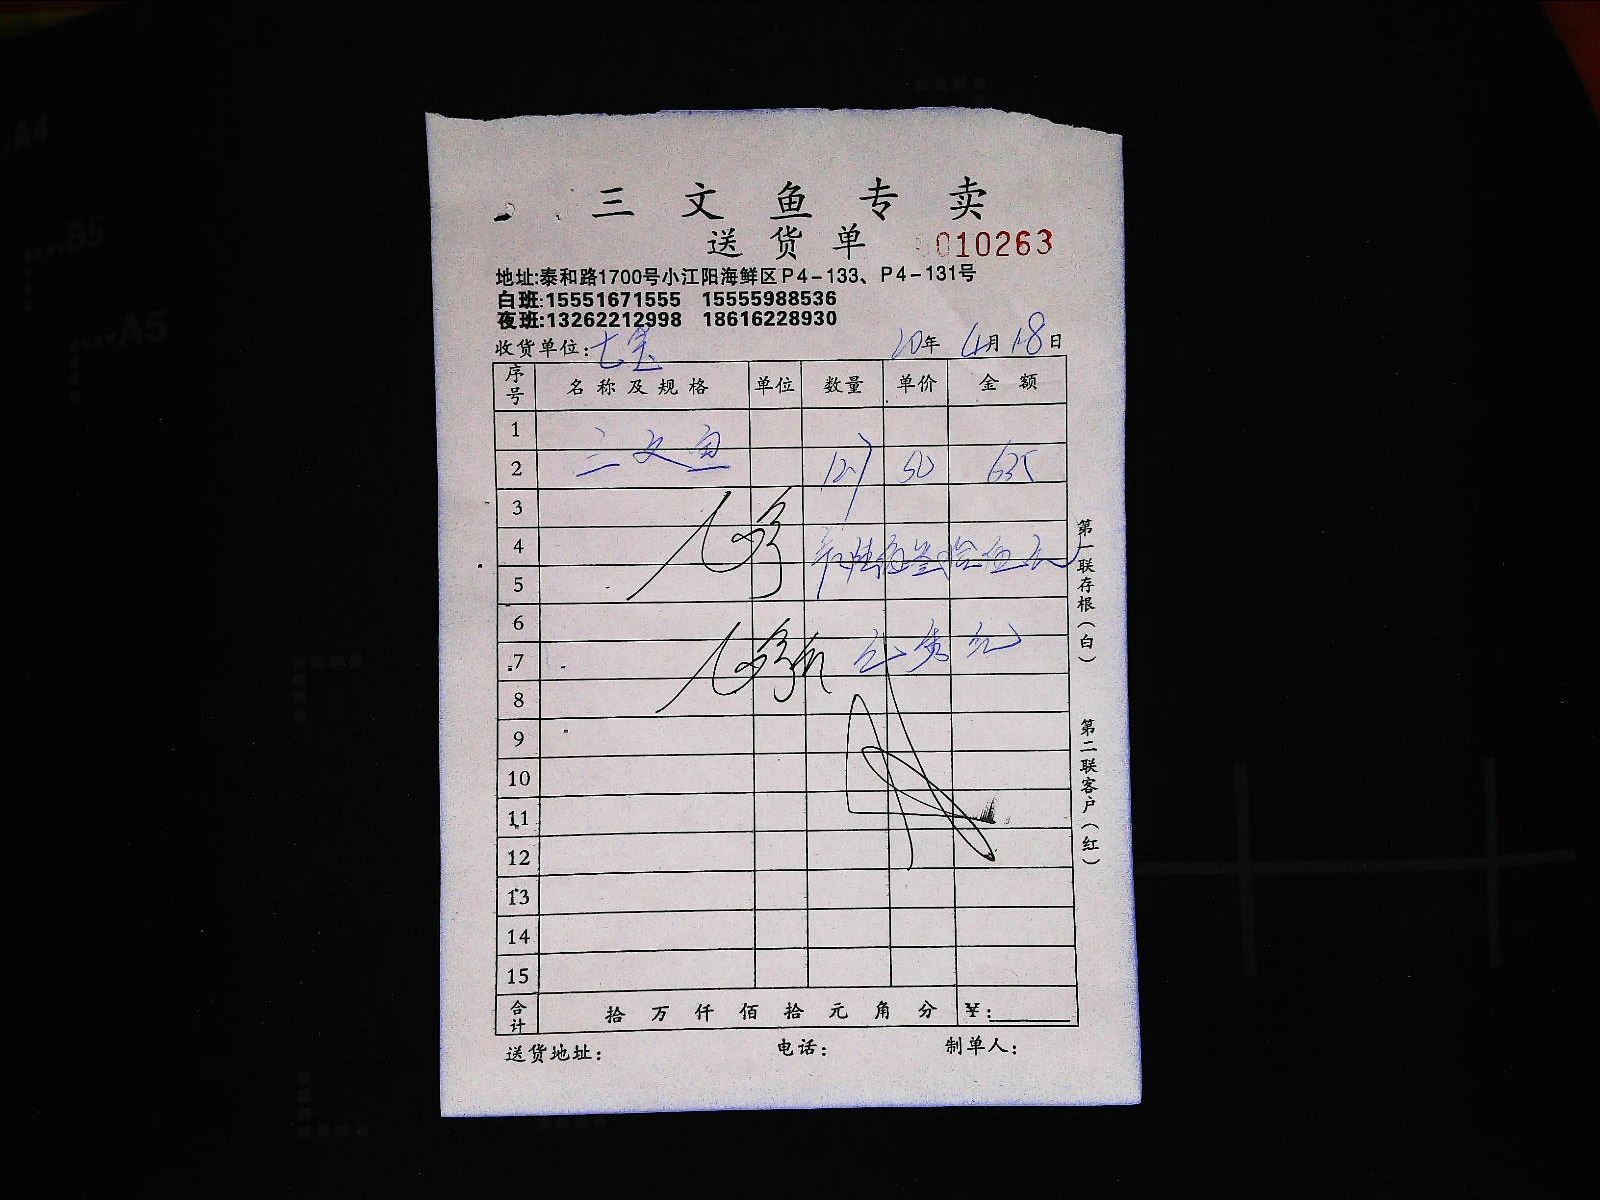 三文鱼专卖
送货单 010263
地址:泰和路1700号小江阳海鲜区P4-133、P4-131号
白班:15551671555 15555988536
夜班:13262212998 18616228930
收货单位:七宝 20年 4月 18日
序号 名称及规格 单位 数量 单价 金额
1
2 三文鱼 127 50 635
3
4 陆佰叁拾伍元
5
6
7
8
9
10
11
12
13
14
15
合计 拾 万 仟 佰 拾 元 角 分 ¥:
送货地址: 电话: 制单人:
第一联存根(白)
第二联客户(红)
A4
B5
A5